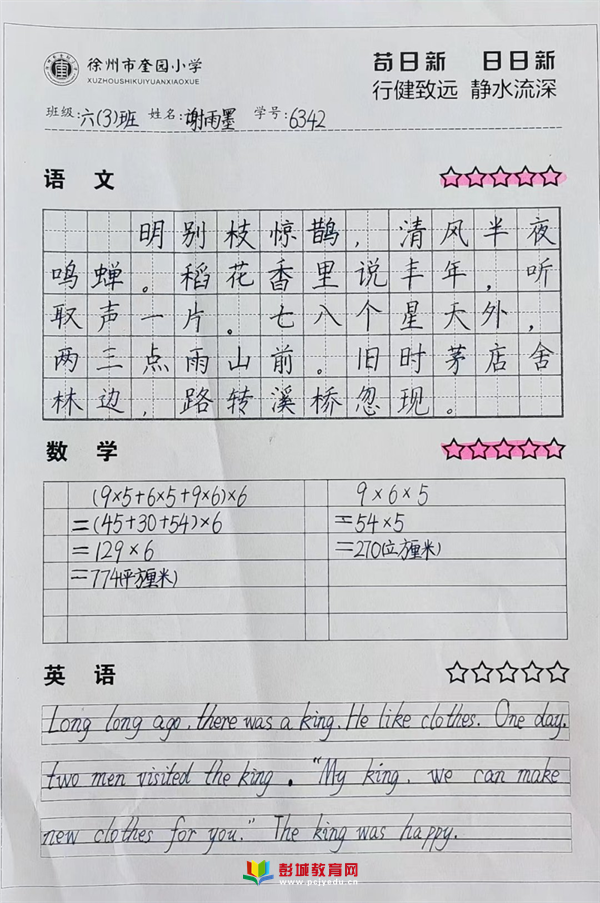 徐州市奎园小学
XUZHOUSHIKUIYUANXIAOXUE
苟日新 日日新
行健致远 静水流深
班级:六(3)班 姓名:谢雨墨 学号:6342
语文
明别枝惊鹊,清风半夜
鸣蝉。稻花香里说丰年,听
取声一片。七八个星天外,
两三点雨山前。旧时茅店舍
林边,路转溪桥忽现。
数学
(9×5+6×5+9×6)×6
=(45+30+54)×6
=129×6
=774(平方厘米)
9×6×5
=54×5
=270(立方厘米)
英语
Long long ago, there was a king. He like clothes. One day,
two men visited the king. "My king, we can make
new clothes for you." The king was happy.
彭城教育网
www.pcjyedu.cn